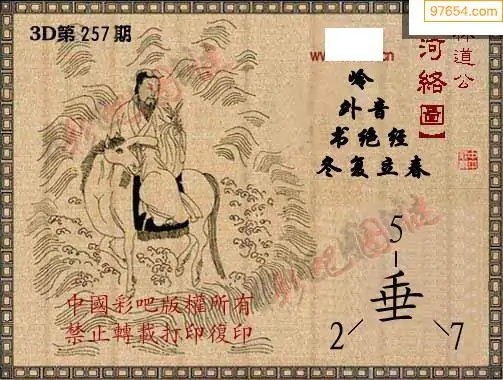 97654.com
3D第257期
道公
河絡圖】
岭
外音
书绝经
冬复立春
5
垂
2
7
中國彩吧版權所有
禁止轉載打印復印